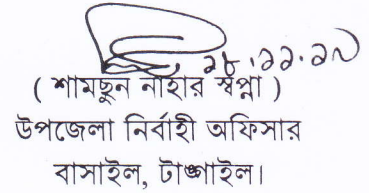 ২৮.১১.১৭
( শামছুন নাহার স্বপ্না )
উপজেলা নির্বাহী অফিসার
বাসাইল, টাঙ্গাইল।